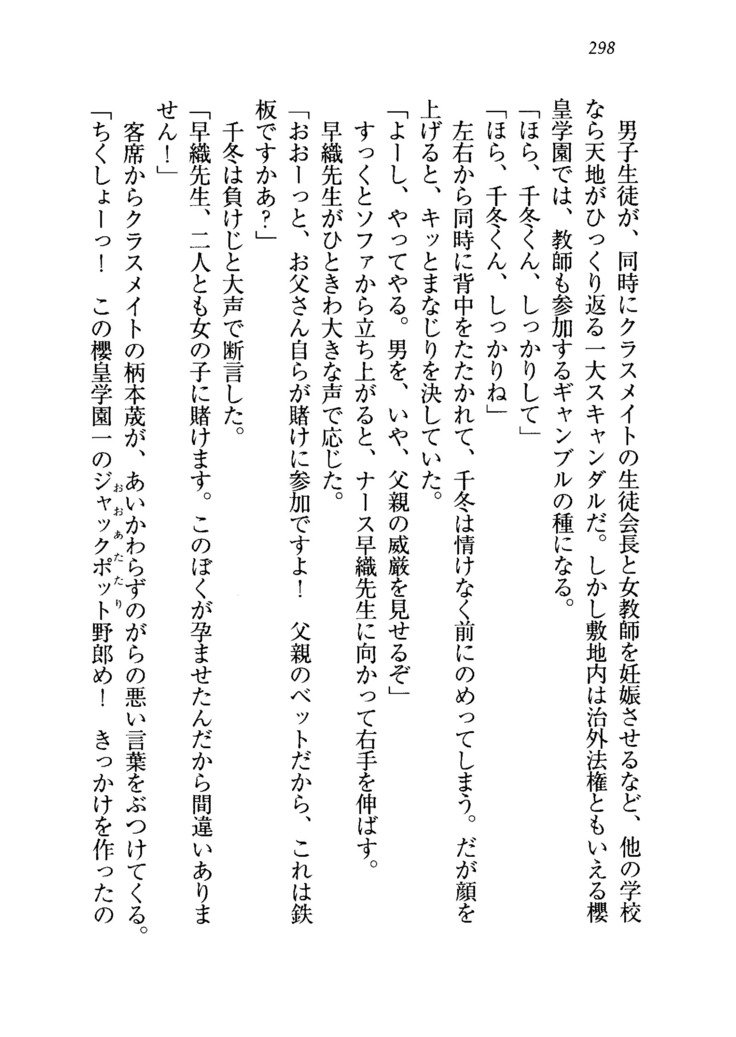 298
男子生徒が、同時にクラスメイトの生徒会長と女教師を妊娠させるなど、他の学校
なら天地がひっくり返る一大スキャンダルだ。しかし敷地内は治外法権ともいえる櫻
皇学園では、教師も参加するギャンブルの種になる。
「ほら、千冬くん、しっかりして」
「ほら、千冬くん、しっかりね」
左右から同時に背中をたたかれて、千冬は情けなく前にのめってしまう。だが顔を
上げると、キッとまなじりを決していた。
「よーし、やってやる。男を、いや、父親の威厳を見せるぞ」
すっくとソファから立ち上がると、ナース早織先生に向かって右手を伸ばす。
早織先生がひときわ大きな声で応じた。
「おおーっと、お父さん自らが賭けに参加ですよ！　父親のベットだから、これは鉄
板ですかあ？」
千冬は負けじと大声で断言した。
「早織先生、二人とも女の子に賭けます。このぼくが孕ませたんだから間違いありま
せん！」
客席からクラスメイトの柄本蒇が、あいかわらずのがらの悪い言葉をぶつけてくる。
「ちくしょーっ！　この櫻皇学園一のジャックポット野郎め！　きっかけを作ったの
おおあたり